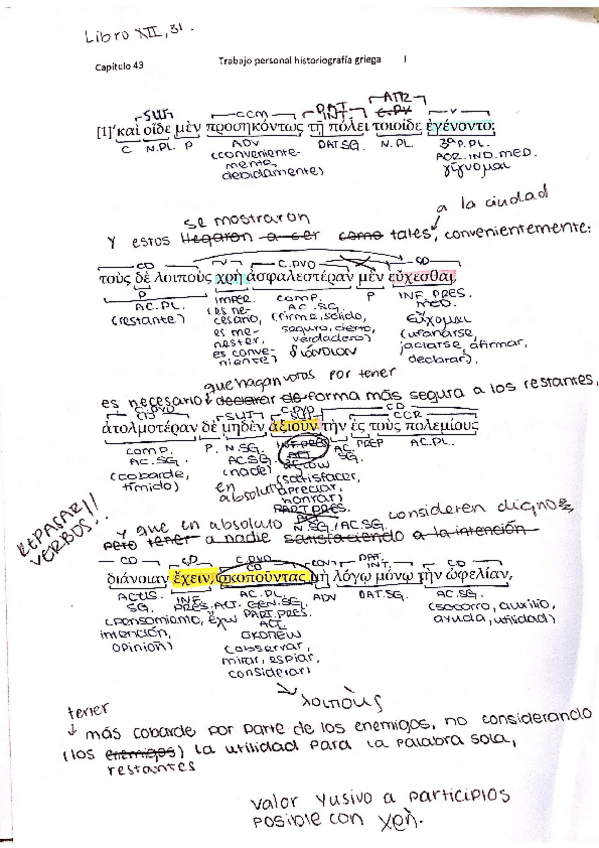 Libro XII, 31.
Capítulo 43 Trabajo personal historiografía griega 1
SUJ CCM DAT. INT. ATR
C.PV V
[1]'καὶ οἵδε μὲν προσηκόντως τῇ πόλει τοιοίδε ἐγένοντο;
C N.PL. P ADV DAT.SG. N.PL. 3ª P. PL.
(conveniente- AOR. IND. MED.
mente, γίγνομαι
debidamente)
a la ciudad
se mostraron
Y estos llegaron a ser como tales, convenientemente:
CD V C.PVO CD
τοὺς δὲ λοιποὺς χρὴ ἀσφαλεστέραν μὲν εὔχεσθαι,
P IMPER. COMP. P INF. PRES.
AC.PL. (es ne- AC. SG. MED.
(restante) cesario, (firme, sólido, εὔχομαι
es me- seguro, cierto, (ufanarse,
nester, verdadero) jactarse, afirmar,
es conve- declarar).
niente)
que hagan votos por tener
es necesario declarar de forma más segura a los restantes,
C.PVO SUJ C.PVO CD
SUJ CCR
ἀτολμοτέραν δὲ μηδὲν ἀξιοῦν τὴν ἐς τοὺς πολεμίους
COMP. P. N.SG. INF.PRES AC. PREP AC.PL.
AC.SG. AC.SG ACT. SG.
(cobarde, (nade) (satisfacer,
tímido) en absoluto apreciar,
honrar)
PART.PRES.
N.SG/AC.SG.
REPASAR//
VERBOS...
consideren dignos,
y que en absoluto
pero tener a nadie satisfaciendo a la intención
CD CD C.PVO DAT. INT. CD
CD
διάνοιαν ἔχειν, σκοποῦντας μὴ λόγῳ μόνῳ τὴν ὠφελίαν,
ACUS. INF. AC.PL. ADV DAT.SG. AC.SG.
SG. PRES.ACT. GEN.SG. (socorro, auxilio,
(pensamiento, ἔχω PART.PRES. ayuda, utilidad)
intención, ACT.
opinión) σκοπέω
(observar,
mirar, espiar,
considerar)
λοιποὺς
tener
más cobarde por parte de los enemigos, no considerando
(los enemigos) la utilidad para la palabra sola,
restantes
valor yusivo a participios
posible con χρή.